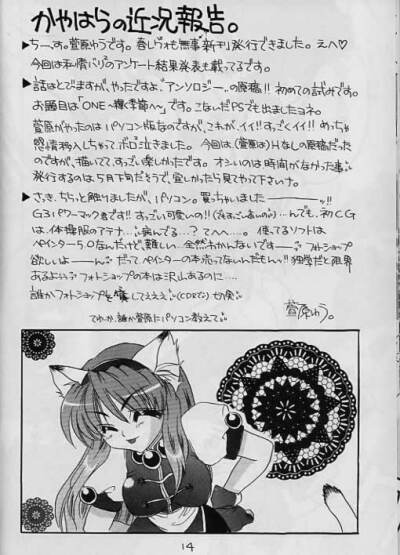 かやはらの近況報告。
▶ちーっす。萱原ゆうです。春レヴォも無事"新刊"発行できました。えへ♡
今回は私情バリバリのアンケート結果発表も載ってるです。
▶話はとびますが、やったですよ、"アンソロジー"の原稿!! 初めての試みです。
お題目は「ONE～輝く季節へ～」です。こないだPSでも出ましたヨネ。
萱原がやったのはパソコン版なのですが、これが、イイ!! すっごくイイ!! めっちゃ
感情移入しちゃってボロ泣きました。今回は、(萱原は)Hなしの原稿だった
のですが、描いてて、すっごい楽しかったです。オシいのは時間がなかった事
発行するのは5月下旬だそうで、宜しかったら見てやって下さいナ。
▶さっき、ちらっと触りましたが、パソコン。買っちゃいましたーーーッ!!
G3パワーマック君です!! すっごい可愛いの!! んでも、初CG
は、体操服のアテナ…。病んでる…？てへへ…。使ってるソフトは
ペインター5.0なんだけど、難しい…全然わかんないですーー フォトショップ
欲しいよーー だってペインターの本売ってないんだもん!! 独学だと限界
あるよぅ フォトショップの本は沢山あるのに…。
誰かフォトショップを てえええ (CDRで) 切実
てゆーか、誰か萱原にパソコン教えて
萱原ゆう。
14